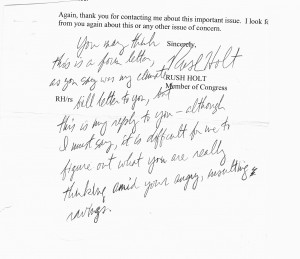 Again, thank you for contacting me about this important issue. I look f
from you again about this or any other issue of concern.
Sincerely,
You may think
this is a form letter,
Rush Holt
as you say was my climate
RUSH HOLT
Member of Congress
RH/rs
bill letter to you, but
this is my reply to you – although
I must say, it is difficult for me to
figure out what you are really
thinking amid your angry, insulting
ravings.